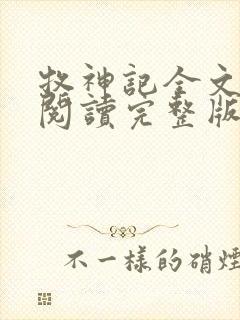 牧神記全文
閱讀完整版
不一樣的硝煙